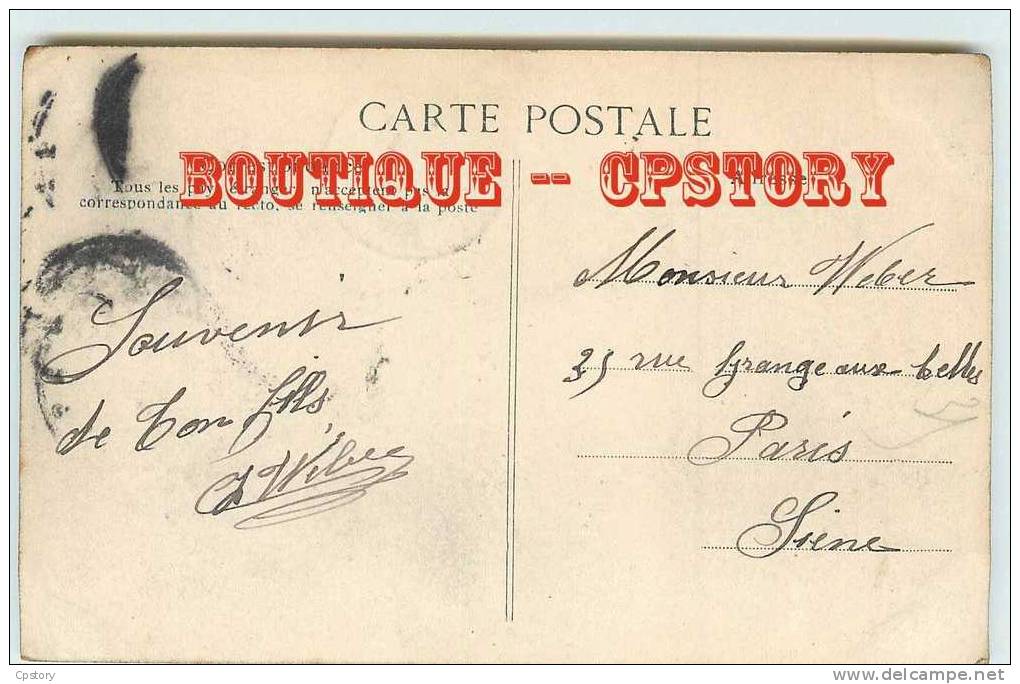 CARTE POSTALE
BOUTIQUE -- CPSTORY
Correspondance
Tous les pays étrangers n'acceptent pas la
correspondance au recto, se renseigner à la poste
Adresse
Souvenir
de ton fils
J Weber
Monsieur Weber
35 rue Grange aux belles
Paris
Siene
Cpstory
delcampe.net